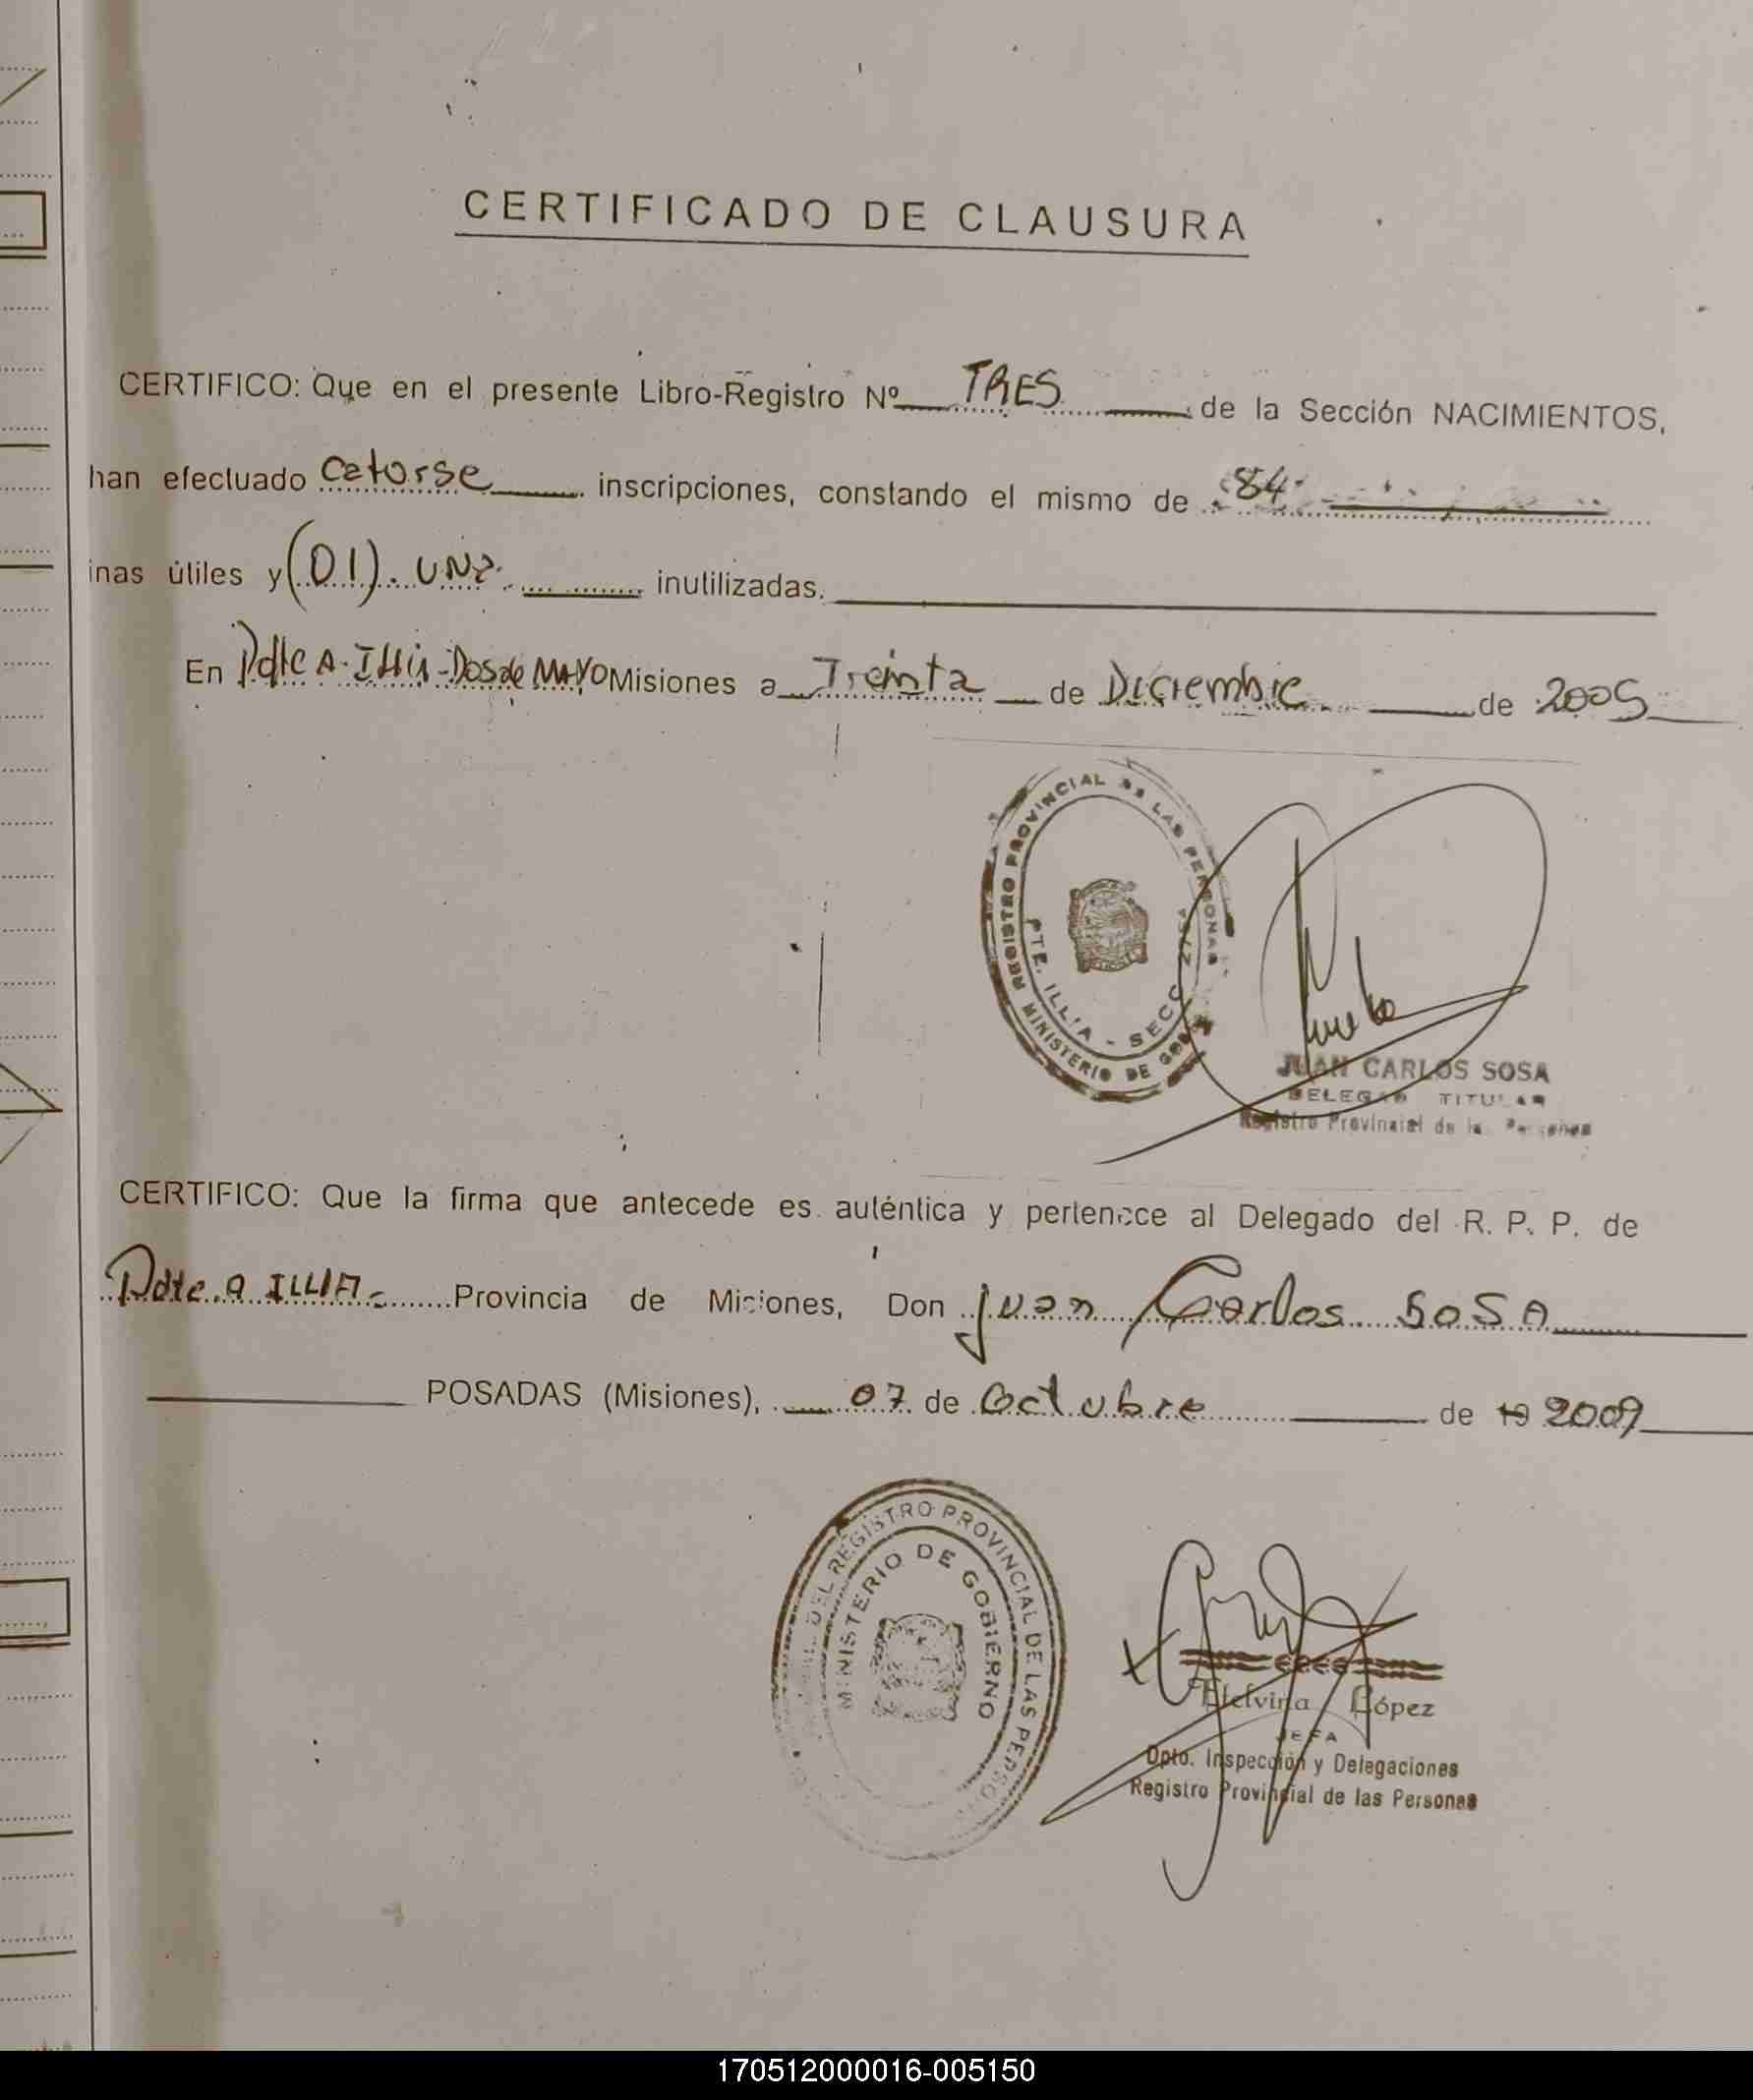 CERTIFICADO DE CLAUSURA
CERTIFICO: Que en el presente Libro-Registro Nº TRES de la Sección NACIMIENTOS,
han efectuado Catorse inscripciones, constando el mismo de 84
inas útiles y (01). UNA inutilizadas.
En Pdte A. Illia - Dos de MAYO Misiones a Treinta de Diciembre de 2005
REGISTRO PROVINCIAL DE LAS PERSONAS
PTE. ILLIA - SECC
MINISTERIO DE
JUAN CARLOS SOSA
DELEGAD TITULAR
Registro Provincial de las Personas
CERTIFICO: Que la firma que antecede es auténtica y pertenece al Delegado del R. P. P. de
Pdte. A ILLIA - Provincia de Misiones, Don Juan Carlos SOSA
POSADAS (Misiones), 07 de Octubre de 19 2009
DEL REGISTRO PROVINCIAL DE LAS PERSONAS
MINISTERIO DE GOBIERNO
Etelvina López
JEFA
Dpto. Inspección y Delegaciones
Registro Provincial de las Personas
170512000016-005150